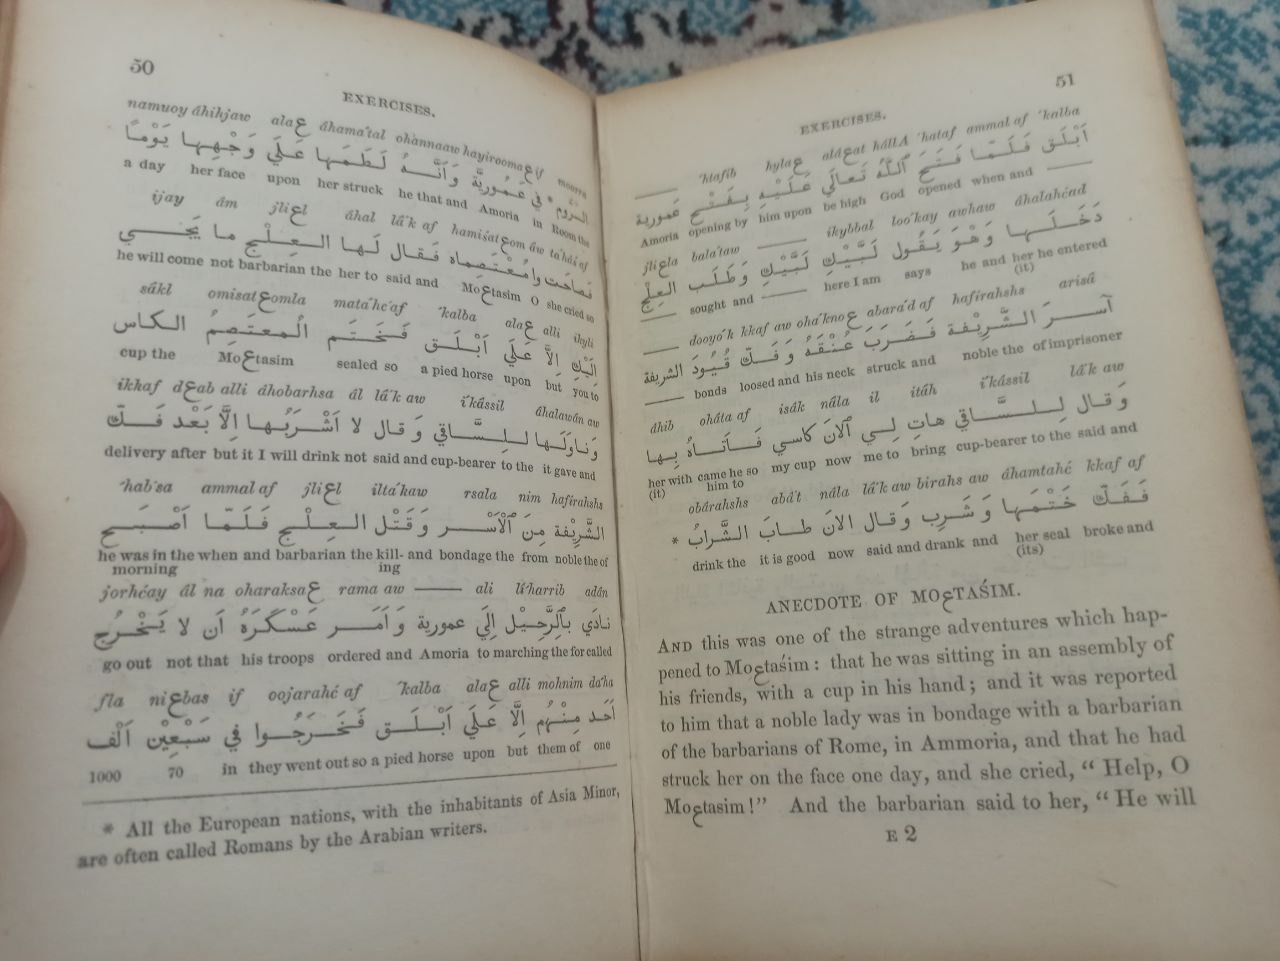 50
EXERCISES.
namuoy áhihjaw alaع áhama'tal ohànnaaw hayiroomaع if
الروم * في عَمُورِيَّة وَأَنَّهُ لَطَمَها عَلَي وَجْهِها يَوْماً
a day her face upon her struck he that and Amoria in Room the
ijay ám jliعl áhal lá'k af hamiśatعom áw ta'háś af
فَصاحَت وامُعْتَصِماه فَقال لَها العِلْج ما يَجْـي
he will come not barbarian the her to said and Moعtasim O she cried so
sákl omisatعomla mata'he'af 'kalba alaع alli ikyli
الَيْكِ إِلاَّ عَلَي أَبْلَق فَخَتَم المُعتَصِمُ الكاس
cup the Moعtasim sealed so a pied horse upon but you to
ikkaf dعab alli áhobarhsa ál lá'k aw i'kássil áhalawán aw
وَناوَلَها لِلسَّاقي وَقال لا أَشْرَبُها إِلَّا بَعْد فَكّ
delivery after but it I will drink not said and cup-bearer to the it gave and
'hab'sa ammal af jliعl iltá'kaw rsala nim hafírahshs
الشَّرِيْفة مِنَ الْأَسْر وَقَتْل العِلْج فَلَمّا اَصْبَح
he was in the when and barbarian the kill- and bondage the from noble the of
morning ing
jorhéay ál na oharaksaع rama aw —— ali li'harrib adán
نادَي بالرَّحِيْل إِلَي عمورية وَأَمَر عَسْكَرَهُ اَن لا يَخْرُج
go out not that his troops ordered and Amoria to marching the for called
fla niعbas if oojarahé af 'kalba alaع alli mohnim da'ha
أَحَد مِنْهُم إِلَّا عَلَي أَبْلَق فَخَرَجُوا في سَبْعِيْن أَلْف
1000 70 in they went out so a pied horse upon but them of one
* All the European nations, with the inhabitants of Asia Minor,
are often called Romans by the Arabian writers.
51
EXERCISES.
—— 'htafib hylaع alaعat hállA 'hataf ammal af 'kalba
أَبْلَق فَلَمّا فَتَحَ اللّٰهُ تَعالَي عَلَيْهِ بِفَتْح عمورية
Amoria opening by him upon be high God opened when and ——
jliعla bala'taw —— ikybbal loo'kay awhaw áhalahéad
دَخَلَها وَهْوَ يَقُول لَبَّيْكِ لَبَّيْكِ وَطَلَب العِلج
—— sought and —— here I am says he and her he entered
(it)
—— dooyó'k kkaf aw ohá'knoع abara'd af hafírahshs arisá
آسرَ الشَّرِيْفة فَضَرَبَ عُنْقَهُ وَفَكّ قُيُودَ الشريفة
—— bonds loosed and his neck struck and noble the of imprisoner
áhib oháta af isák nála il itáh i'kássil lá'k aw
وَقال لِلسَّاقي هاتِ لِي الْآنَ كاسي فَأَتاهُ بِها
her with came he so my cup now me to bring cup-bearer to the said and
(it) him to
obárahshs abá't nála lá'k aw birahs aw áhamtahé kkaf af
فَفَكّ خَتْمَها وَشَرِب وَقال الانَ طابَ الشَّرابُ *
drink the it is good now said and drank and her seal broke and
(its)
ANECDOTE OF MOعTAŚIM.
AND this was one of the strange adventures which hap-
pened to Moعtaśim: that he was sitting in an assembly of
his friends, with a cup in his hand; and it was reported
to him that a noble lady was in bondage with a barbarian
of the barbarians of Rome, in Ammoria, and that he had
struck her on the face one day, and she cried, “Help, O
Moعtasim!” And the barbarian said to her, “He will
E 2